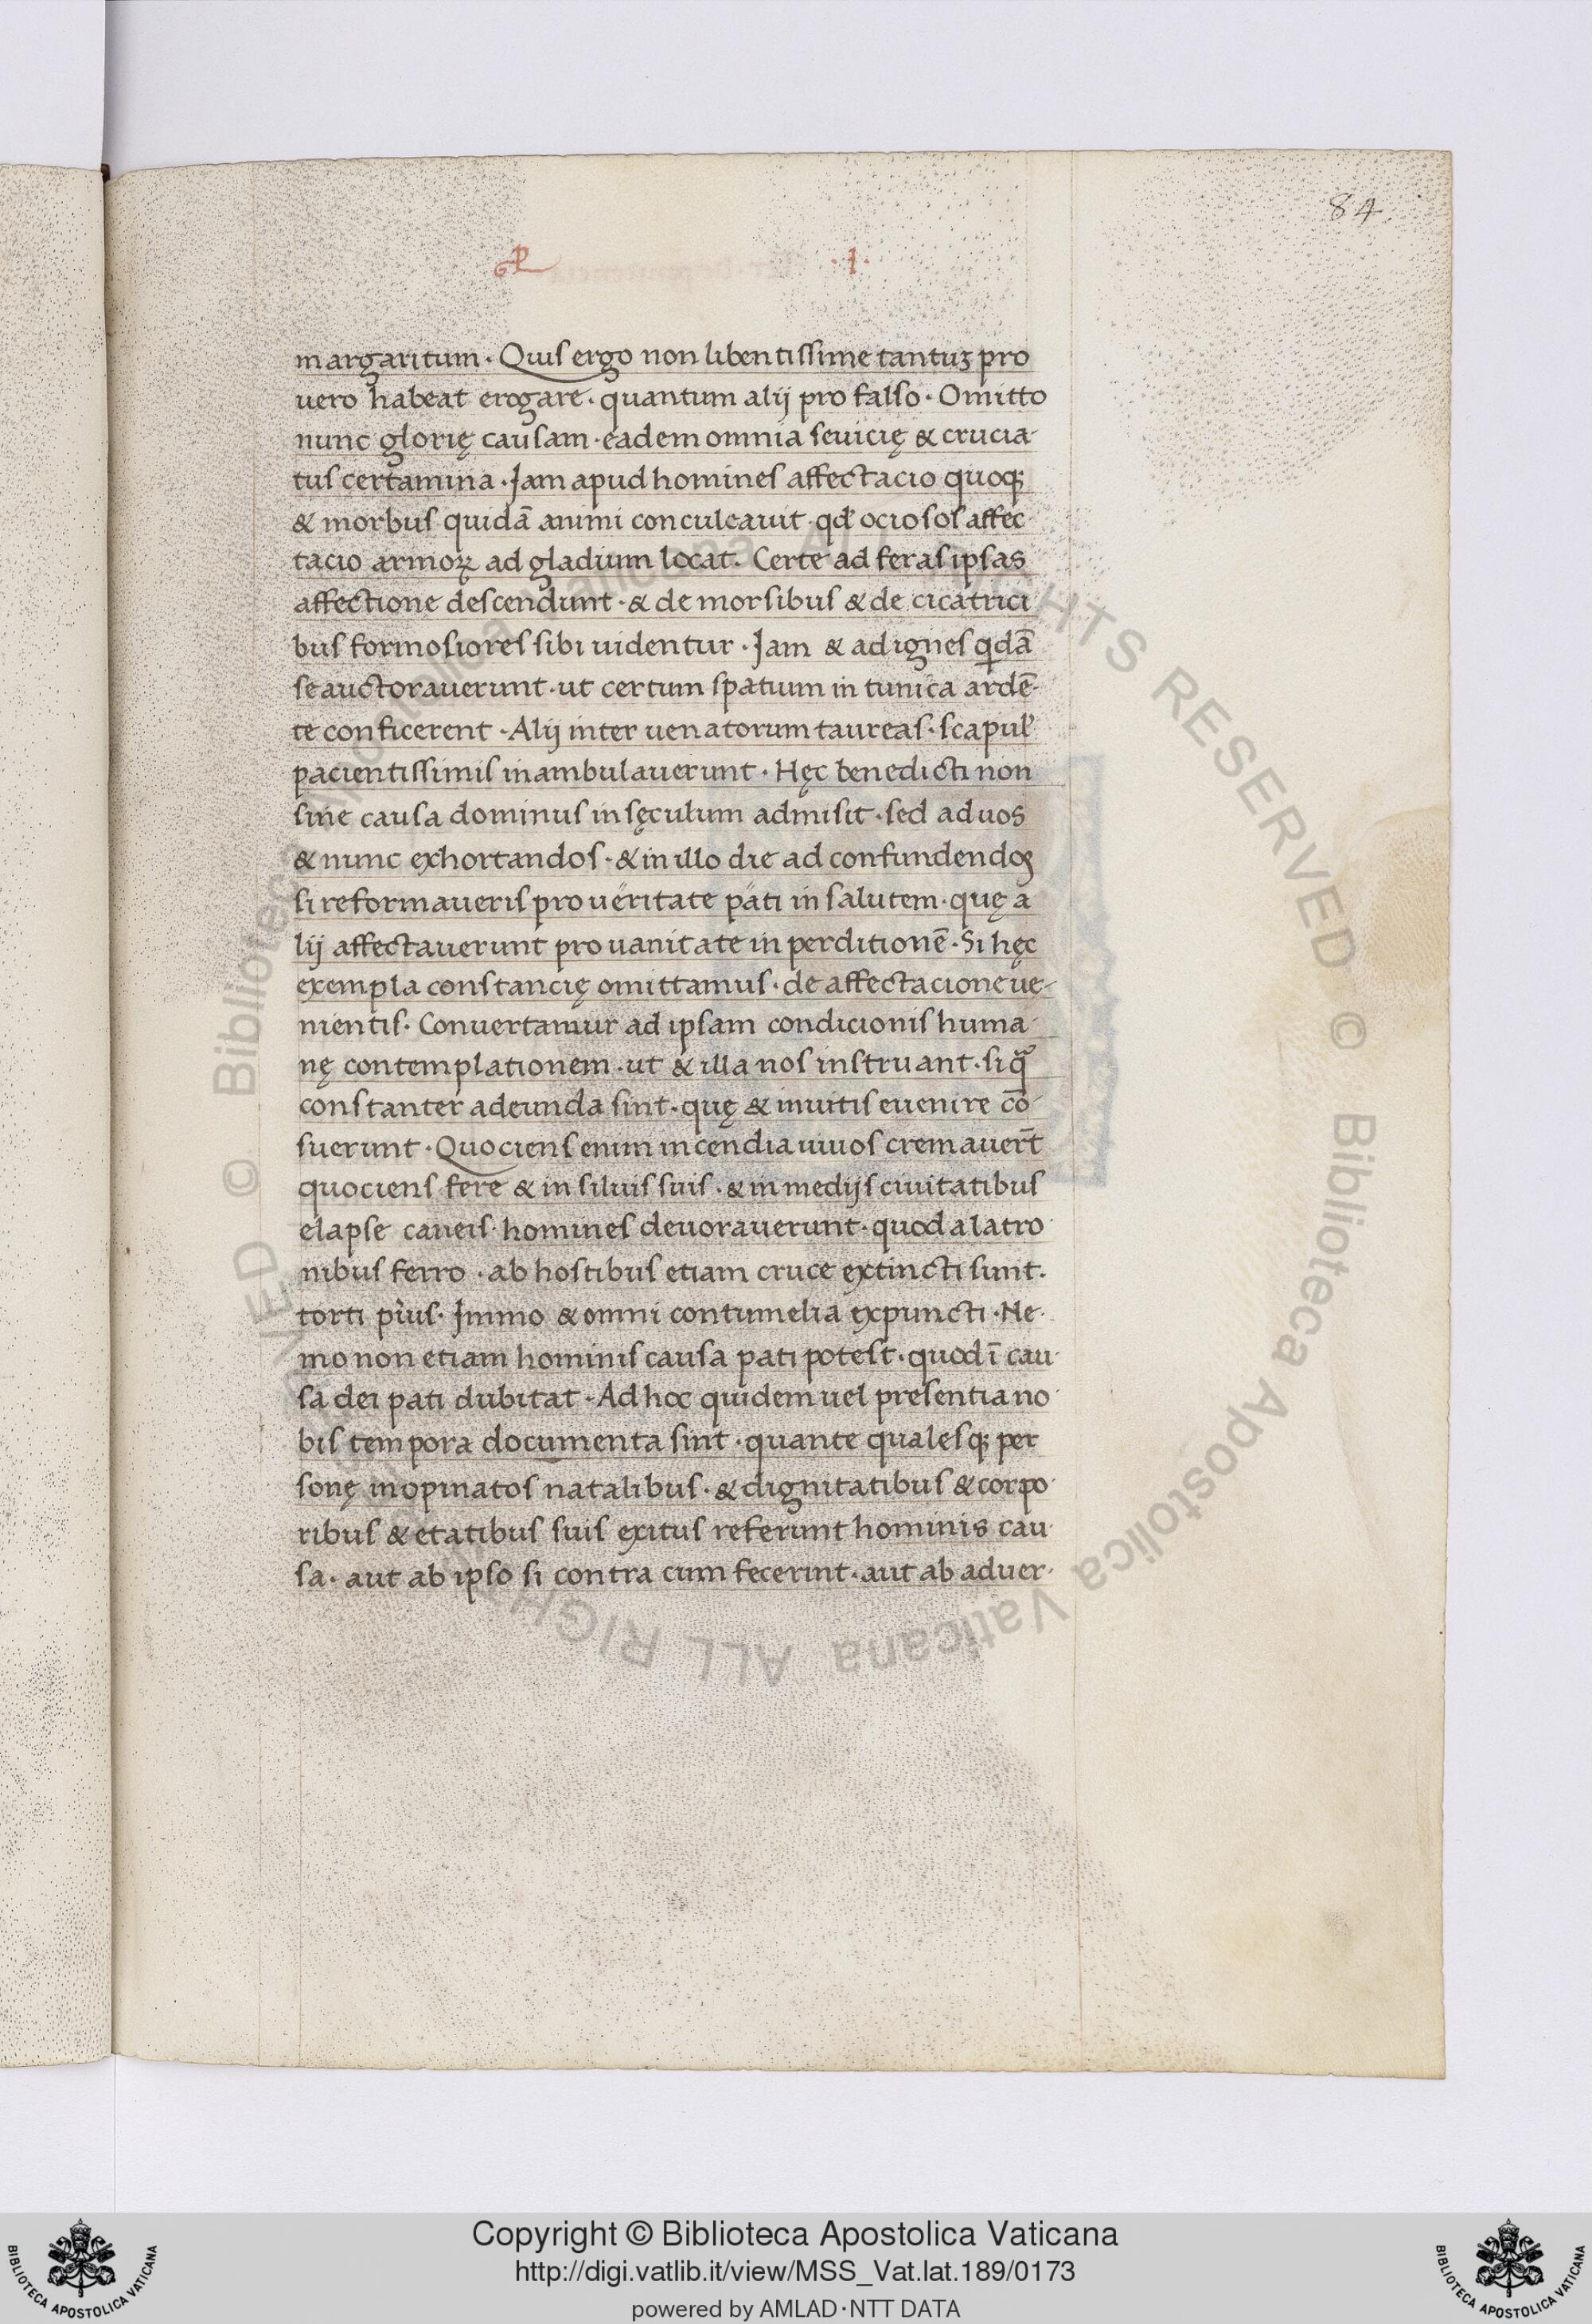 84
P · I ·
margaritum · Quis ergo non libentissime tantuꝫ pro
uero habeat erogare · quantum alij pro falso · Omitto
nunc glorię causam · eadem omnia seuicię & crucia-
tus certamina · Jam apud homines affectacio quoqꝫ
& morbus quidā animi conculcauit · qđ ociosos affec-
tacio armoꝝ ad gladium locat. Certe ad feras ipsas
affectione descendunt · & de morsibus & de cicatrici
bus formosiores sibi uidentur · Jam & ad ignes qidā
se auctorauerunt · ut certum spatium in tunica ardē-
te conficerent · Alij inter uenatorum taureas · scapul'
pacientissimis inambulauerunt · Hęc benedicti non
sine causa dominus in sęculum admisit · sed ad uos
& nunc exhortandos · & in illo die ad confundendos
si reformaueris pro ueritate pati in salutem · quę a
lij affectauerunt pro uanitate in perditionē · Si hęc
exempla constancię omittamus · de affectacione ue-
nientis · Conuertamur ad ipsam condicionis huma-
nę contemplationem · ut & illa nos instruant · si qa
constanter adeunda sint · quę & inuitis euenire cō-
suerunt · Quociens enim incendia uiuos cremauerт̄
quociens fere & in siluis suis · & in medijs ciuitatibus
elapse caueis · homines deuorauerunt · quod a latro-
nibus ferro · ab hostibus etiam cruce extincti sunt.
torti prius · Jmmo & omni contumelia expuncti · Ne-
mo non etiam hominis causa pati potest · quod ī cau-
sa dei pati dubitat · Ad hoc quidem uel presentia no-
bis tempora documenta sint · quante qualesqꝫ per
sonę inopinatos natalibus · & dignitatibus & corpo-
ribus & etatibus suis exitus referunt hominis cau-
sa · aut ab ipso si contra eum fecerint · aut ab aduer-
Copyright © Biblioteca Apostolica Vaticana
http://digi.vatlib.it/view/MSS_Vat.lat.189/0173
powered by AMLAD·NTT DATA
BIBLIOTECA APOSTOLICA VATICANA
BIBLIOTECA APOSTOLICA VATICANA
© Biblioteca Apostolica Vaticana ALL RIGHTS RESERVED © Biblioteca Apostolica Vaticana ALL RIGHTS RESERVED